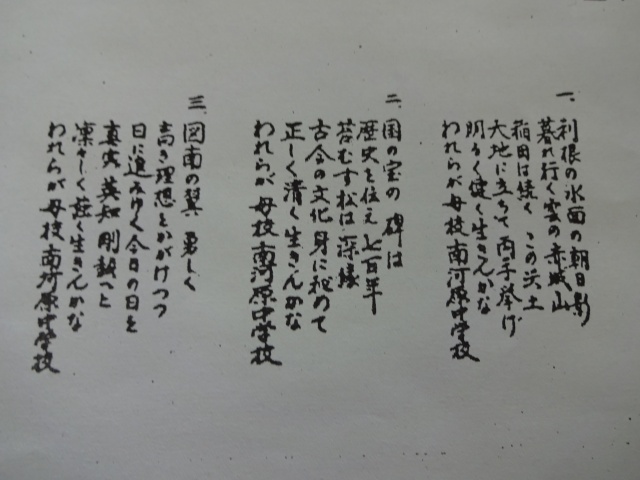 一、利根の水面の朝日影
暮れ行く雲の赤城山
稲田は続く この沃土
大地に立ちて 両手挙げ
明るく健く生きんかな
われらが 母校 南河原中学校
二、国の宝の 碑は
歴史を伝え 七百年
苔むす松は 深緑
古今の文化 身に秘めて
正しく清く生きんかな
われらが 母校 南河原中学校
三、図南の翼 勇しく
高き理想をかかげつつ
日に進みゆく今日の日を
真実 英知 剛毅もと
凛々しく強く生きんかな
われらが 母校 南河原中学校